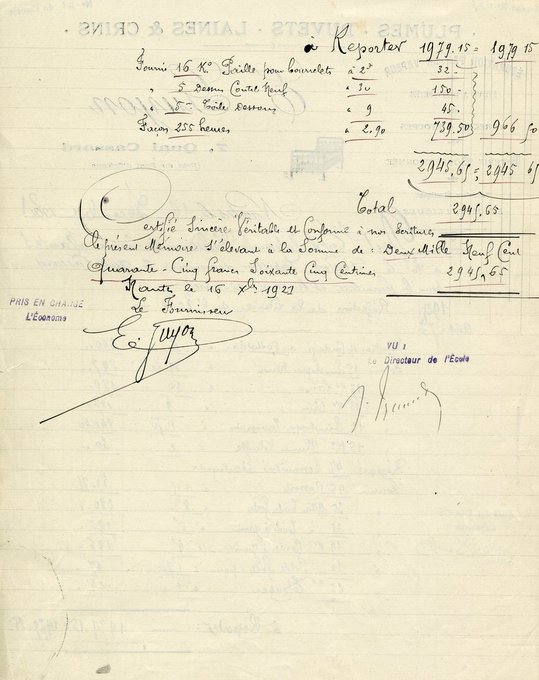 à Reporter 1979.15 = 1979 15
Fournie 16 Kº Paille pour bourrelets à 2ᶠ 32 -
" 5 Dessus Coutil Neuf à 30 150 -
" 5 - Toile Dessous à 9 45 -
Façon 255 heures à 2.90 739.50 966 50
2945.65 = 2945 65
Total 2945.65
Certifié Sincère Véritable et Conforme à nos écritures
le présent Mémoire s'élevant à la Somme de : Deux Mille Neuf Cent
Quarante - Cinq francs Soixante Cinq Centimes 2945,65
Nantes le 16 Xbre 1921
Le Fournisseur
PRIS EN CHARGE
L'Économe
E. Guyon
VU :
Le Directeur de l'École